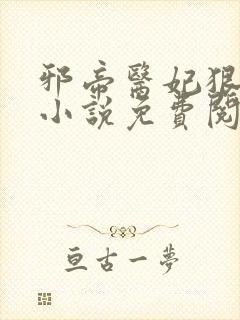 邪帝醫妃狠
小說免費閱
亘古一夢